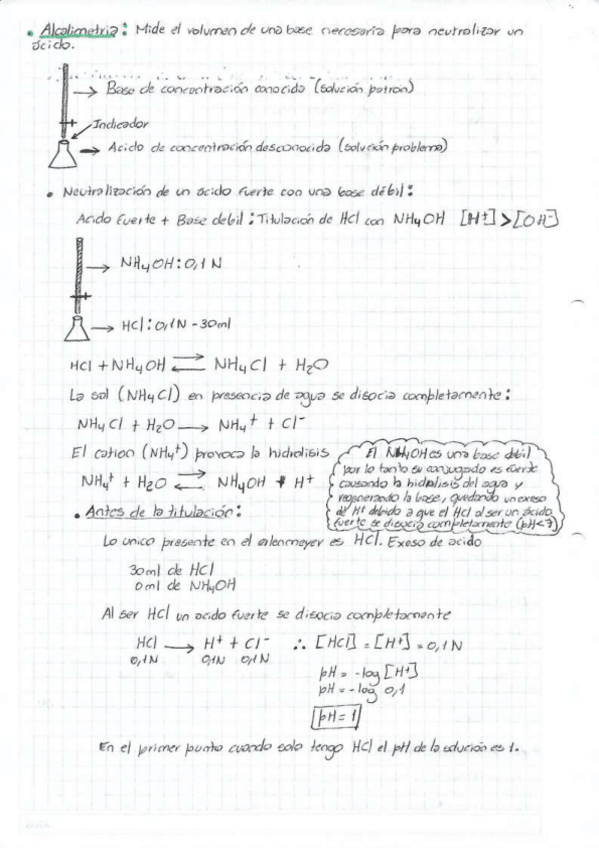 • Alcalimetria: Mide el volumen de una base necesaria para neutralizar un
ácido.
→ Base de concentración conocida (solución patron)
Indicador
→ Acido de concentración desconocida (solución problema)
• Neutralización de un ácido fuerte con una base débil:
Acido Fuerte + Base debil: Titulación de HCl con NH4OH [H+] > [OH-]
→ NH4OH: 0,1 N
→ HCl: 0,1N - 30ml
HCl + NH4OH ⇌ NH4Cl + H2O
La sal (NH4Cl) en presencia de agua se disocia completamente:
NH4Cl + H2O → NH4+ + Cl-
El cation (NH4+) provoca la hidrolisis
NH4+ + H2O ⇌ NH4OH + H+
El NH4OH es una base débil
por lo tanto su conjugado es fuerte
causando la hidrolisis del agua y
regenerando la base, quedando un exeso
de H+ debido a que el HCl al ser un ácido
fuerte se disocia completamente (pH<7)
• Antes de la titulación:
Lo unico presente en el erlenmeyer es HCl. Exeso de acido
30ml de HCl
0ml de NH4OH
Al ser HCl un acido fuerte se disocia completamente
HCl → H+ + Cl- ∴ [HCl] = [H+] = 0,1N
0,1N 0,1N 0,1N
pH = -log [H+]
pH = -log 0,1
pH = 1
En el primer punto cuando solo tengo HCl el pH de la solución es 1.